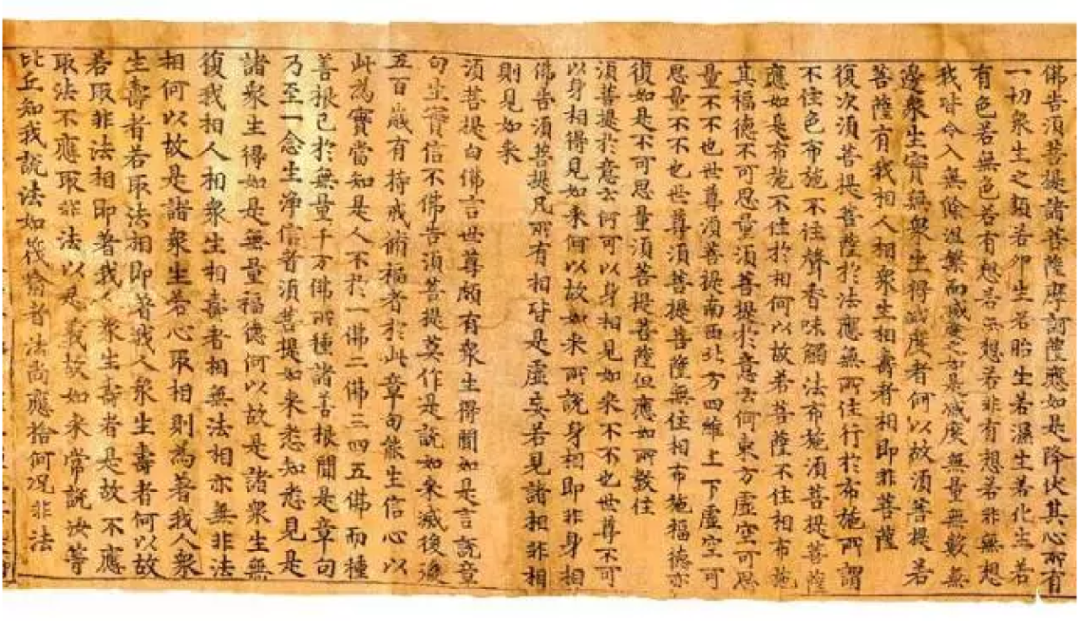 佛告須菩提諸菩薩摩訶薩應如是降伏其心所有
一切衆生之類若卵生若胎生若濕生若化生若
有色若無色若有想若无想若非有想若非無想
我皆令入無餘涅槃而滅度之如是滅度無量無數無
邊衆生實無衆生得滅度者何以故須菩提若
菩薩有我相人相衆生相壽者相即非菩薩
復次須菩提菩薩於法應無所住行於布施所謂
不住色布施不住聲香味觸法布施須菩提菩薩
應如是布施不住於相何以故若菩薩不住相布施
其福德不可思量須菩提於意云何東方虛空可思
量不不也世尊須菩提南西北方四維上下虛空可
思量不不也世尊須菩提菩薩無住相布施福德亦
復如是不可思量須菩提菩薩但應如所教住
須菩提於意云何可以身相見如来不不也世尊不可
以身相得見如来何以故如来所說身相即非身相
佛告須菩提凡所有相皆是虛妄若見諸相非相
則見如来
須菩提白佛言世尊頗有衆生得聞如是言說章
句生實信不佛告須菩提莫作是說如来滅後後
五百歲有持戒脩福者於此章句能生信心以
此為實當知是人不於一佛二佛三四五佛而種
善根已於無量千万佛所種諸善根聞是章句
乃至一念生淨信者須菩提如来悉知悉見是
諸衆生得如是無量福德何以故是諸衆生無
復我相人相衆生相壽者相無法相亦無非法
相何以故是諸衆生若心取相則為著我人衆
生壽者若取法相即著我人衆生壽者何以故
若取非法相即著我人衆生壽者是故不應
取法不應取非法以是義故如来常說汝等
比丘知我說法如筏喻者法尚應捨何況非法